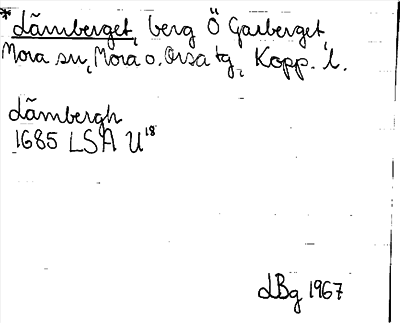 *Lämberget, berg Ö Garberget,
Mora sn, Mora o. Orsa tg, Kopp. l.
Lãmbergh
1685 LSA U18
LBg 1967